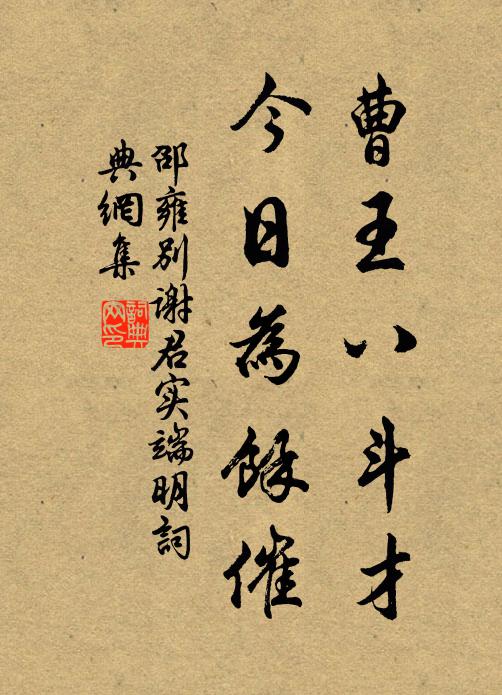 曹王八斗才
今日為餘催
邵雍別謝君实端明詞
典網集
詞典
网印